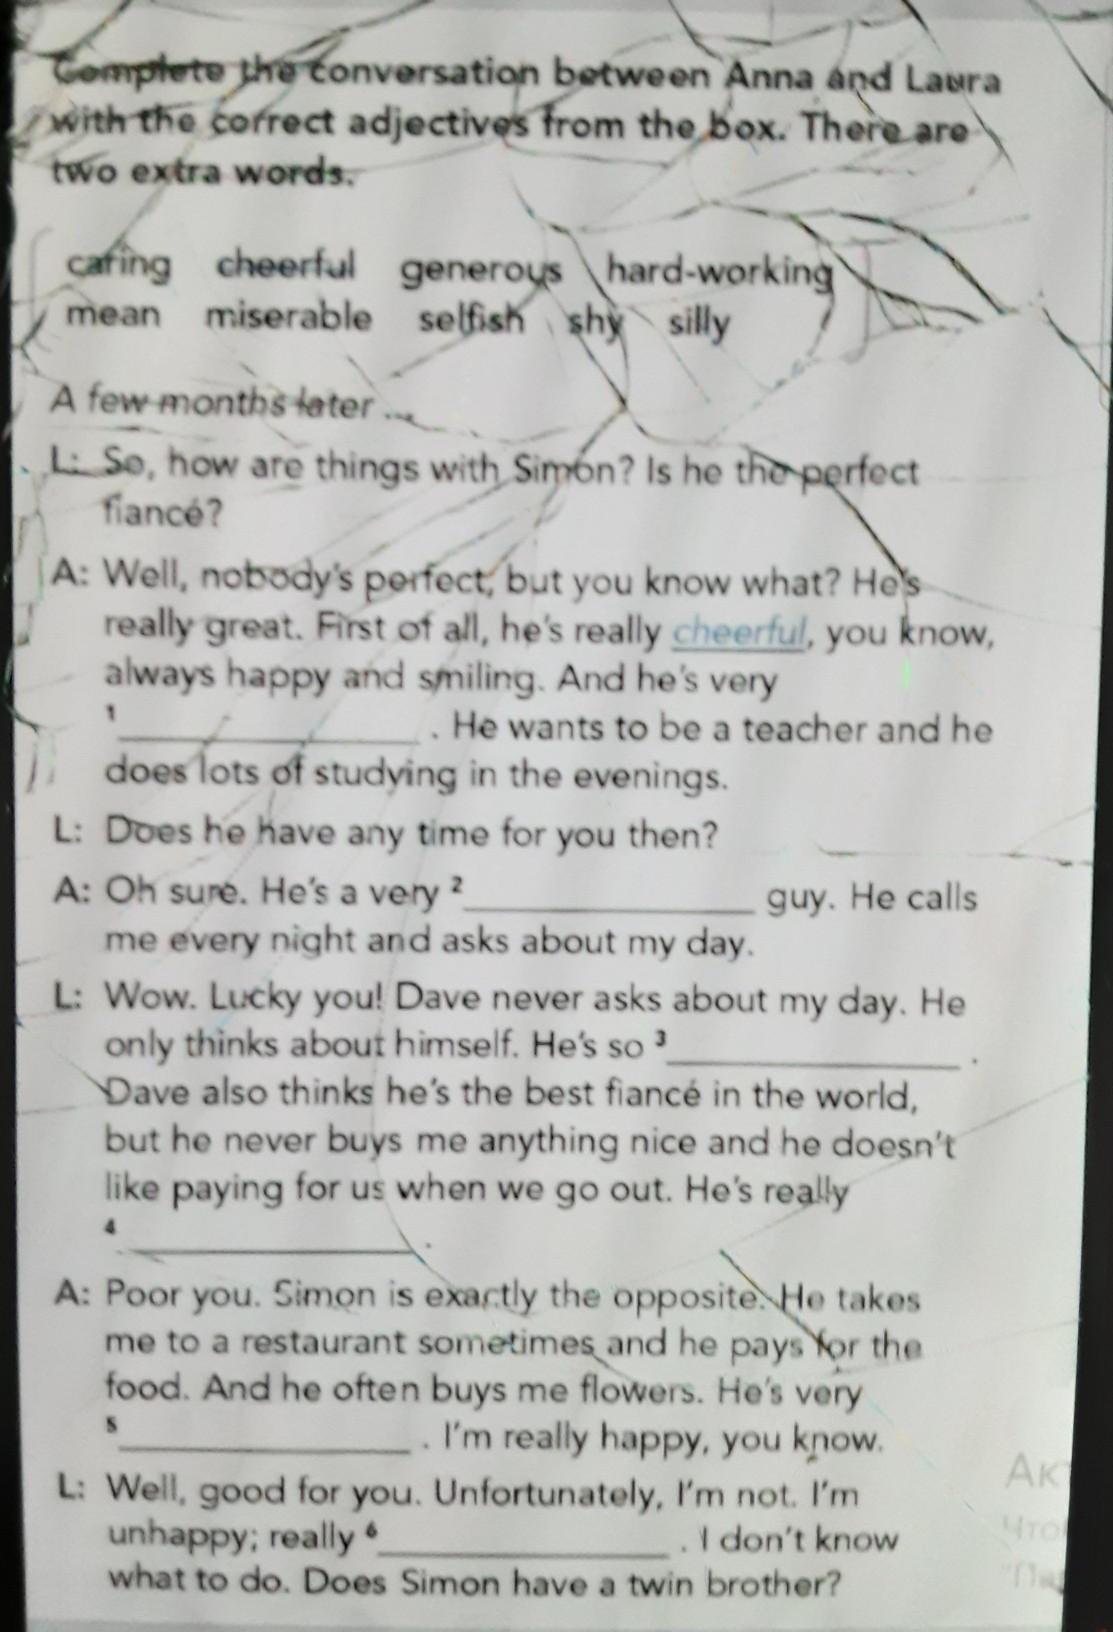 Complete the conversation between Anna and Laura
with the correct adjectives from the box. There are
two extra words.
caring cheerful generous hard-working
mean miserable selfish shy silly
A few months later ...
L: So, how are things with Simon? Is he the perfect
fiancé?
A: Well, nobody's perfect, but you know what? He's
really great. First of all, he's really cheerful, you know,
always happy and smiling. And he's very
1 ____________ . He wants to be a teacher and he
does lots of studying in the evenings.
L: Does he have any time for you then?
A: Oh sure. He's a very 2 ____________ guy. He calls
me every night and asks about my day.
L: Wow. Lucky you! Dave never asks about my day. He
only thinks about himself. He's so 3 ____________ .
Dave also thinks he's the best fiancé in the world,
but he never buys me anything nice and he doesn't
like paying for us when we go out. He's really
4 ____________ .
A: Poor you. Simon is exactly the opposite. He takes
me to a restaurant sometimes and he pays for the
food. And he often buys me flowers. He's very
5 ____________ . I'm really happy, you know.
L: Well, good for you. Unfortunately, I'm not. I'm
unhappy; really 6 ____________ . I don't know
what to do. Does Simon have a twin brother?